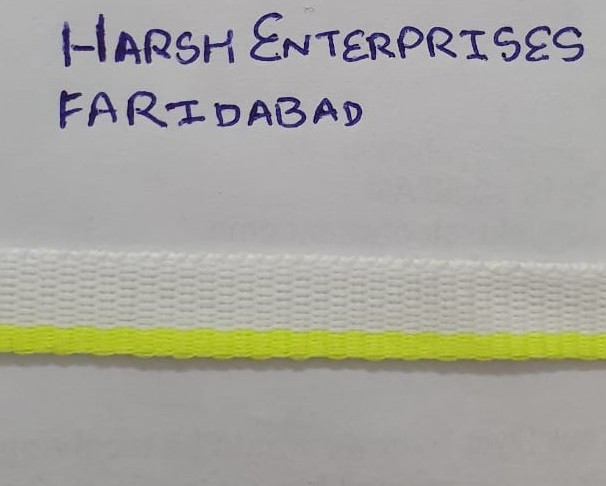 HARSH ENTERPRISES
FARIDABAD